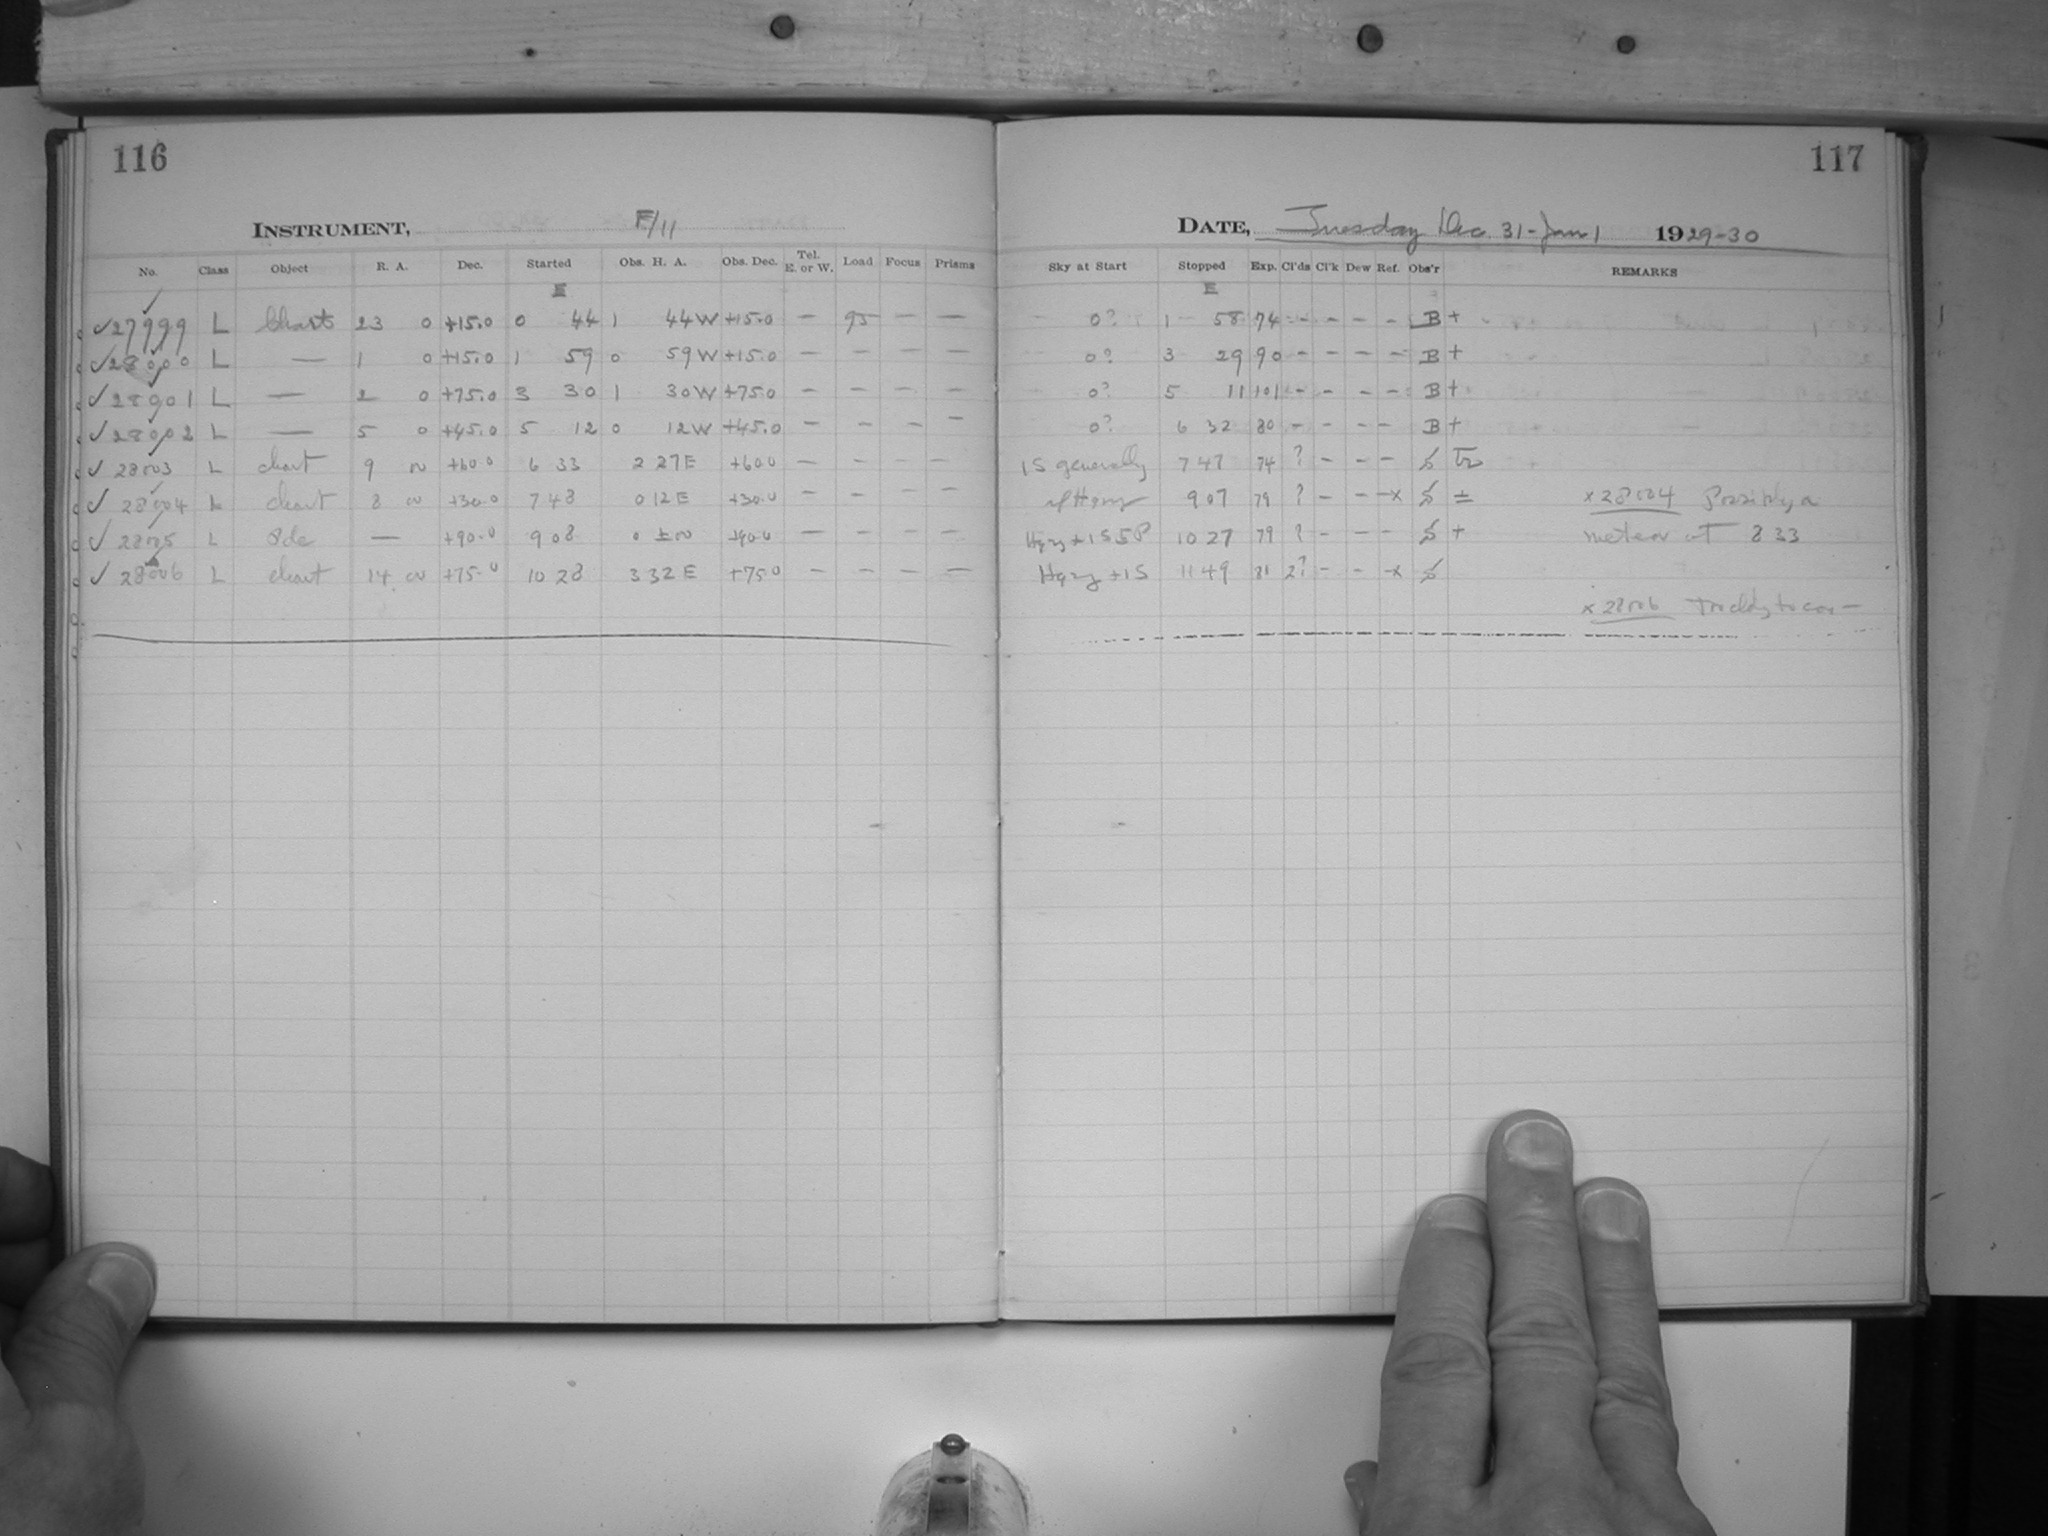 116
INSTRUMENT, F/11
No. Class Object R. A. Dec. Started Obs. H. A. Obs. Dec. Tel. E. or W. Load Focus Prisms
E
✓27999 L Chart 23 0 +15.0 0 44 1 44W +15.0 — 95 — —
✓28000 L — 1 0 +15.0 1 59 0 59W +15.0 — — — —
✓28001 L — 2 0 +75.0 3 30 1 30W +75.0 — — — —
✓28002 L — 5 0 +45.0 5 12 0 12W +45.0 — — — —
✓28003 L chart 9 00 +60.0 6 33 2 27E +60.0 — — — —
✓28004 L chart 8 00 +30.0 7 48 0 12E +30.0 — — — —
✓28005 L Pole — +90.0 9 08 0 ±00 +90.0 — — — —
✓28006 L chart 14 00 +75.0 10 28 3 32E +75.0 — — — —
117
DATE, Tuesday Dec. 31-Jan 1 1929-30
Sky at Start Stopped Exp. Cl'ds Cl'k Dew Ref. Obs'r REMARKS
E
0? 1 58 74 - - - - B +
0? 3 29 90 - - - - B +
0? 5 11 101 - - - - B +
0? 6 32 80 - - - - B +
1S generally 7 47 74 ? - - - S
9 07 79 ? - - -x S ± x 28004 Possibly a
Hazy + 1S 5P 10 27 79 ? - - - S + meteor at 8 33
Hazy + 1S 11 49 81 2? - - -x S
x 28006 Too cldy to con—